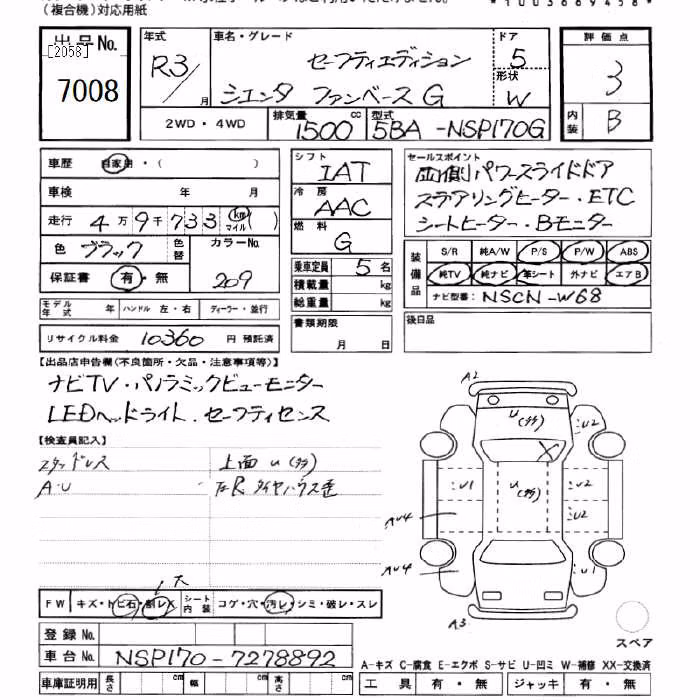 (複合機)対応用紙
出品No.
[2058]
7008
年式
R3/
月
車名・グレード
セーフティエディション
シエンタ ファンベースG
ドア
5
形状
W
評価点
3
内装
B
2WD・4WD
排気量
1500
cc
型式
5BA-NSP170G
車歴
自家用・( )
車検
年 月
走行
4万9千733
km
マイル
( )
色
ブラック
色替
カラーNo.
209
保証書
有・無
モデル年式
年
ハンドル 左・右
ディーラー・並行
リサイクル料金
10360
円 預託済
シフト
IAT
冷房
AAC
燃料
G
乗車定員
5名
積載量
kg
総重量
kg
書類期限
月 日
セールスポイント
両側パワースライドドア
ステアリングヒーター・ETC
シートヒーター・Bモニター
装備品
S/R 純A/W P/S P/W ABS
純TV 純ナビ 革シート 外ナビ エアB
ナビ型番:NSCN-W68
後日品
【出品店申告欄(不良箇所・欠品・注意事項等)】
ナビTV・パノラミックビューモニター
LEDヘッドライト.セーフティセンス
【検査員記入】
スタッドレス
上面 u(多)
A・U
左R タイヤハウス歪
A2
u(多)
X
U2
U1
u(多)
U2
U2
AU4
AU4
U1
A3
スペア
大
FW
キズ・トビ石・割レX
シート内装
コゲ・穴・汚レ・シミ・破レ・スレ
登録No.
車台No.
NSP170-7278892
車庫証明用
長さ
cm
幅
cm
高さ
cm
A-キズ C-腐食 E-エクボ S-サビ U-凹ミ W-補修 XX-交換済
工具
有・無
ジャッキ
有・無